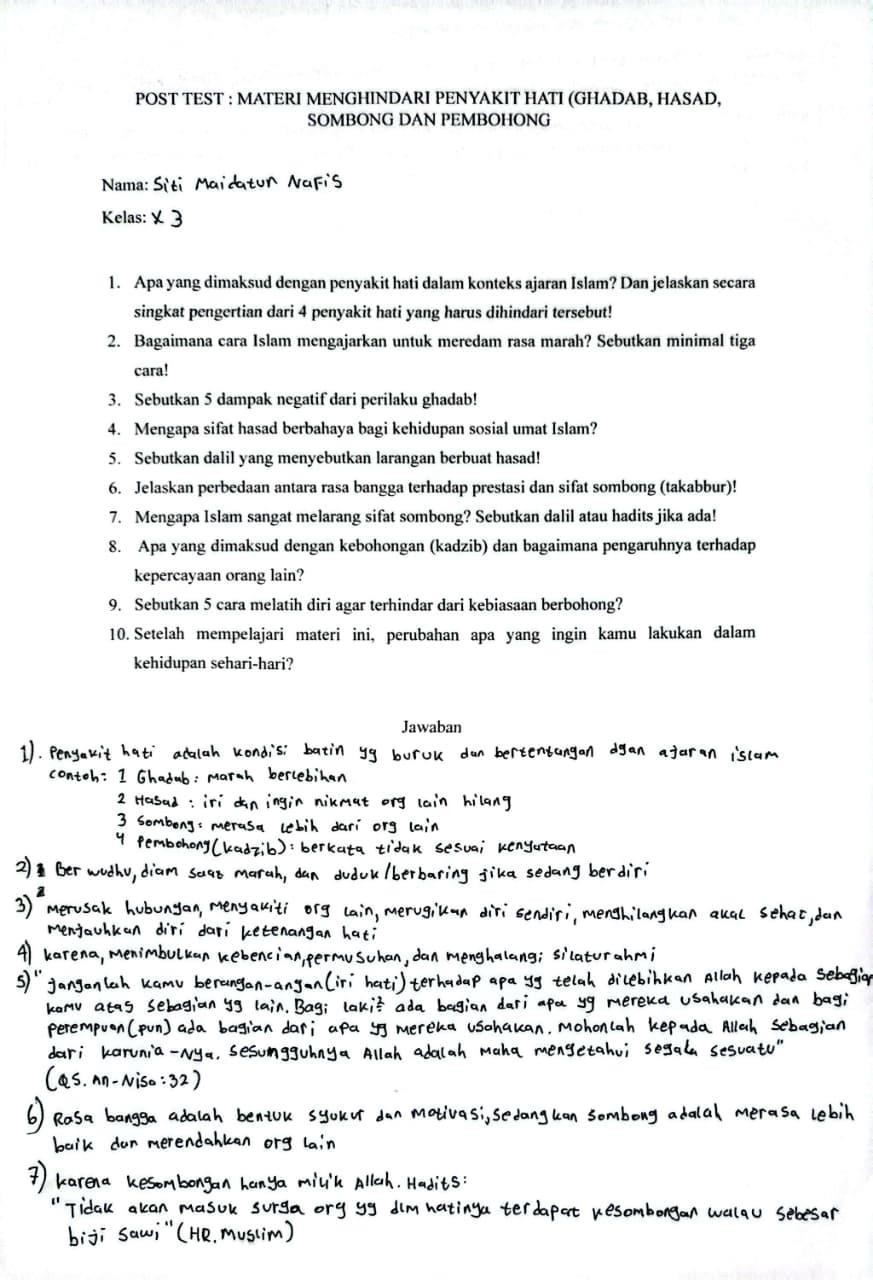 POST TEST : MATERI MENGHINDARI PENYAKIT HATI (GHADAB, HASAD,
SOMBONG DAN PEMBOHONG
Nama: Siti Maidatun Nafis
Kelas: X 3
1. Apa yang dimaksud dengan penyakit hati dalam konteks ajaran Islam? Dan jelaskan secara
singkat pengertian dari 4 penyakit hati yang harus dihindari tersebut!
2. Bagaimana cara Islam mengajarkan untuk meredam rasa marah? Sebutkan minimal tiga
cara!
3. Sebutkan 5 dampak negatif dari perilaku ghadab!
4. Mengapa sifat hasad berbahaya bagi kehidupan sosial umat Islam?
5. Sebutkan dalil yang menyebutkan larangan berbuat hasad!
6. Jelaskan perbedaan antara rasa bangga terhadap prestasi dan sifat sombong (takabbur)!
7. Mengapa Islam sangat melarang sifat sombong? Sebutkan dalil atau hadits jika ada!
8. Apa yang dimaksud dengan kebohongan (kadzib) dan bagaimana pengaruhnya terhadap
kepercayaan orang lain?
9. Sebutkan 5 cara melatih diri agar terhindar dari kebiasaan berbohong?
10. Setelah mempelajari materi ini, perubahan apa yang ingin kamu lakukan dalam
kehidupan sehari-hari?
Jawaban
1). Penyakit hati adalah kondisi batin yg buruk dan bertentangan dgan ajaran islam
contoh: 1 Ghadab: Marah berlebihan
2 Hasad : iri dan ingin nikmat org lain hilang
3 Sombong: merasa lebih dari org lain
4 Pembohong (kadzib): berkata tidak sesuai kenyataan
2) Ber wudhu, diam saat marah, dan duduk/berbaring jika sedang berdiri
2
3) Merusak hubungan, menyakiti org lain, merugikan diri sendiri, menghilangkan akal sehat, dan
Menjauhkan diri dari ketenangan hati
4) karena, menimbulkan kebencian, permusuhan, dan menghalangi silaturahmi
5) "janganlah kamu berangan-angan (iri hati) terhadap apa yg telah dilebihkan Allah kepada Sebagian
kamu atas sebagian yg lain. Bagi laki² ada bagian dari apa yg mereka usahakan dan bagi
perempuan (pun) ada bagian dari apa yg mereka usahakan. Mohonlah kepada Allah Sebagian
dari karunia-Nya. Sesungguhnya Allah adalah Maha mengetahui segala sesuatu"
(QS. An-Nisa: 32)
6) Rasa bangga adalah bentuk syukur dan motivasi, Sedangkan Sombong adalah merasa lebih
baik dan merendahkan org lain
7) karena kesombongan hanya milik Allah. Hadits:
"Tidak akan masuk surga org yg dlm hatinya terdapat kesombongan walau sebesar
biji sawi" (HR. Muslim)